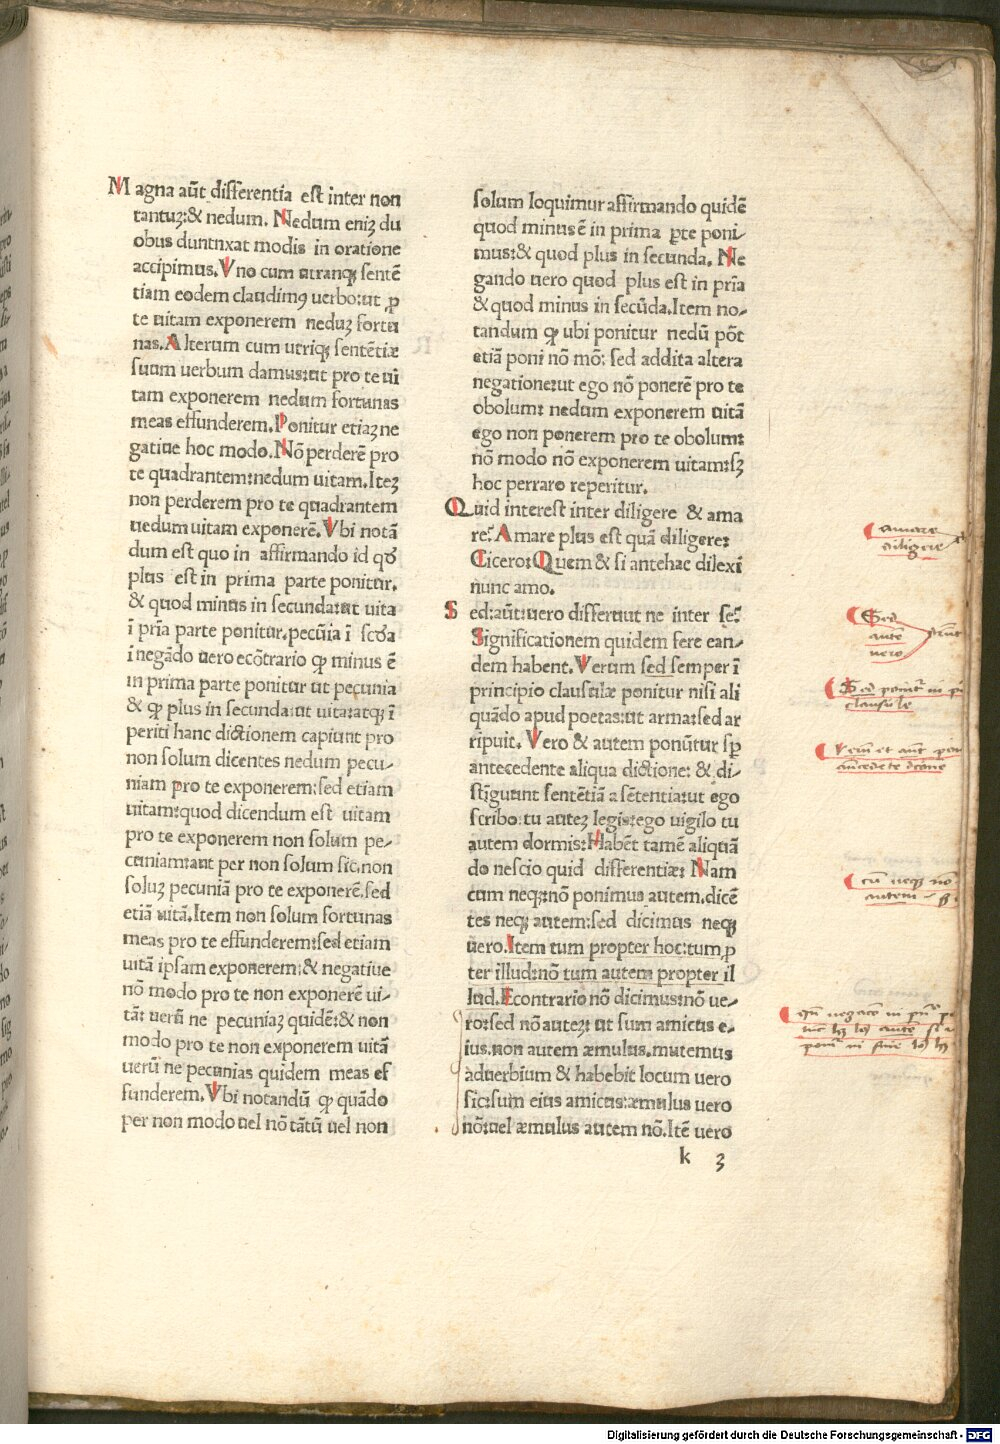 Magna aūt differentia est inter non
tantuꝫ:& nedum. Nedum eniꝫ du
obus duntnxat modis in oratione
accipimus. Vno cum utranqꝫ sentē
tiam eodem claudimꝰ uerbo:ut ꝓ
te uitam exponerem neduꝫ fortu
nas. Alterum cum utriqꝫ sentētiæ
suum uerbum damus:ut pro te ui
tam exponerem nedum fortunas
meas effunderem. Ponitur etiaꝫ ne
gatiue hoc modo. Nō perderē pro
te quadrantem:nedum uitam. Iteꝫ
non perderem pro te quadrantem
nedum uitam exponerē. Vbi notā
dum est quo in affirmando id qď
plus est in prima parte ponitur.
& quod minus in secunda:ut uita
ī pria parte ponitur.pecūia ī scďa
ī negādo uero ecōtrario ꝙ minus ē
in prima parte ponitur ut pecunia
& ꝙ plus in secunda:ut uita:atqꝫ ī
periti hanc dictionem capiunt pro
non solum dicentes nedum pecu-
niam pro te exponerem:sed etiam
uitam:quod dicendum est uitam
pro te exponerem non solum pe-
cuniam:aut per non solum sic.non
soluꝫ pecuniā pro te exponerē.sed
etiā uitā. Item non solum fortunas
meas pro te effunderem:sed etiam
uitā ipsam exponerem:& negatiue
nō modo pro te non exponerē ui-
tā: uerū ne pecuniaꝫ quidē:& non
modo pro te non exponerem uitā
uerū ne pecunias quidem meas ef
funderem. Vbi notandū ꝙ quādo
per non modo uel nō tātū uel non
solum loquimur affirmando quidē
quod minus ē in prima ꝑte poni-
mus:& quod plus in secunda. Ne
gando uero quod plus est in pria
& quod minus in secūda. Item no-
tandum ꝙ ubi ponitur nedū pōt
etiā poni nō mō: sed addita altera
negatione:ut ego nō ponerē pro te
obolum: nedum exponerem uitā
ego non ponerem pro te obolum:
nō modo nō exponerem uitam:sꝫ
hoc perraro reperitur.
Quid interest inter diligere & ama
re? Amare plus est quā diligere:
Cicero: Quem & si antehac dilexi
nunc amo.
Sed:aūt:uero differunt ne inter se?
Significationem quidem fere ean-
dem habent. Verum sed semper ī
principio clausulæ ponitur nisi ali
quādo apud poetas:ut arma:sed ar
ripuit. Vero & autem ponūtur sꝑ
antecedente aliqua dictione: & di-
stīgunt sentētiā a sētentia:ut ego
scribo:tu auteꝫ legis:ego uigilo tu
autem dormis: Habēt tamē aliquā
do nescio quid differentiæ: Nam
cum neqꝫ:nō ponimus autem.dicē
tes neqꝫ autem:sed dicimus neqꝫ
uero. Item tum propter hoc:tum ꝓ
ter illud:nō tum autem propter il
lud. Econtrario nō dicimus:nō ue-
ro:sed nō auteꝫ: ut sum amicus e-
ius.non autem æmulus.mutemus
aduerbium & habebit locum uero
sic:sum eius amicus:æmulus uero
nō:uel æmulus autem nō. Itē uero
k 3
amare
diligere
Sed
aute
uero
clausule
Digitalisierung gefördert durch die Deutsche Forschungsgemeinschaft - DFG